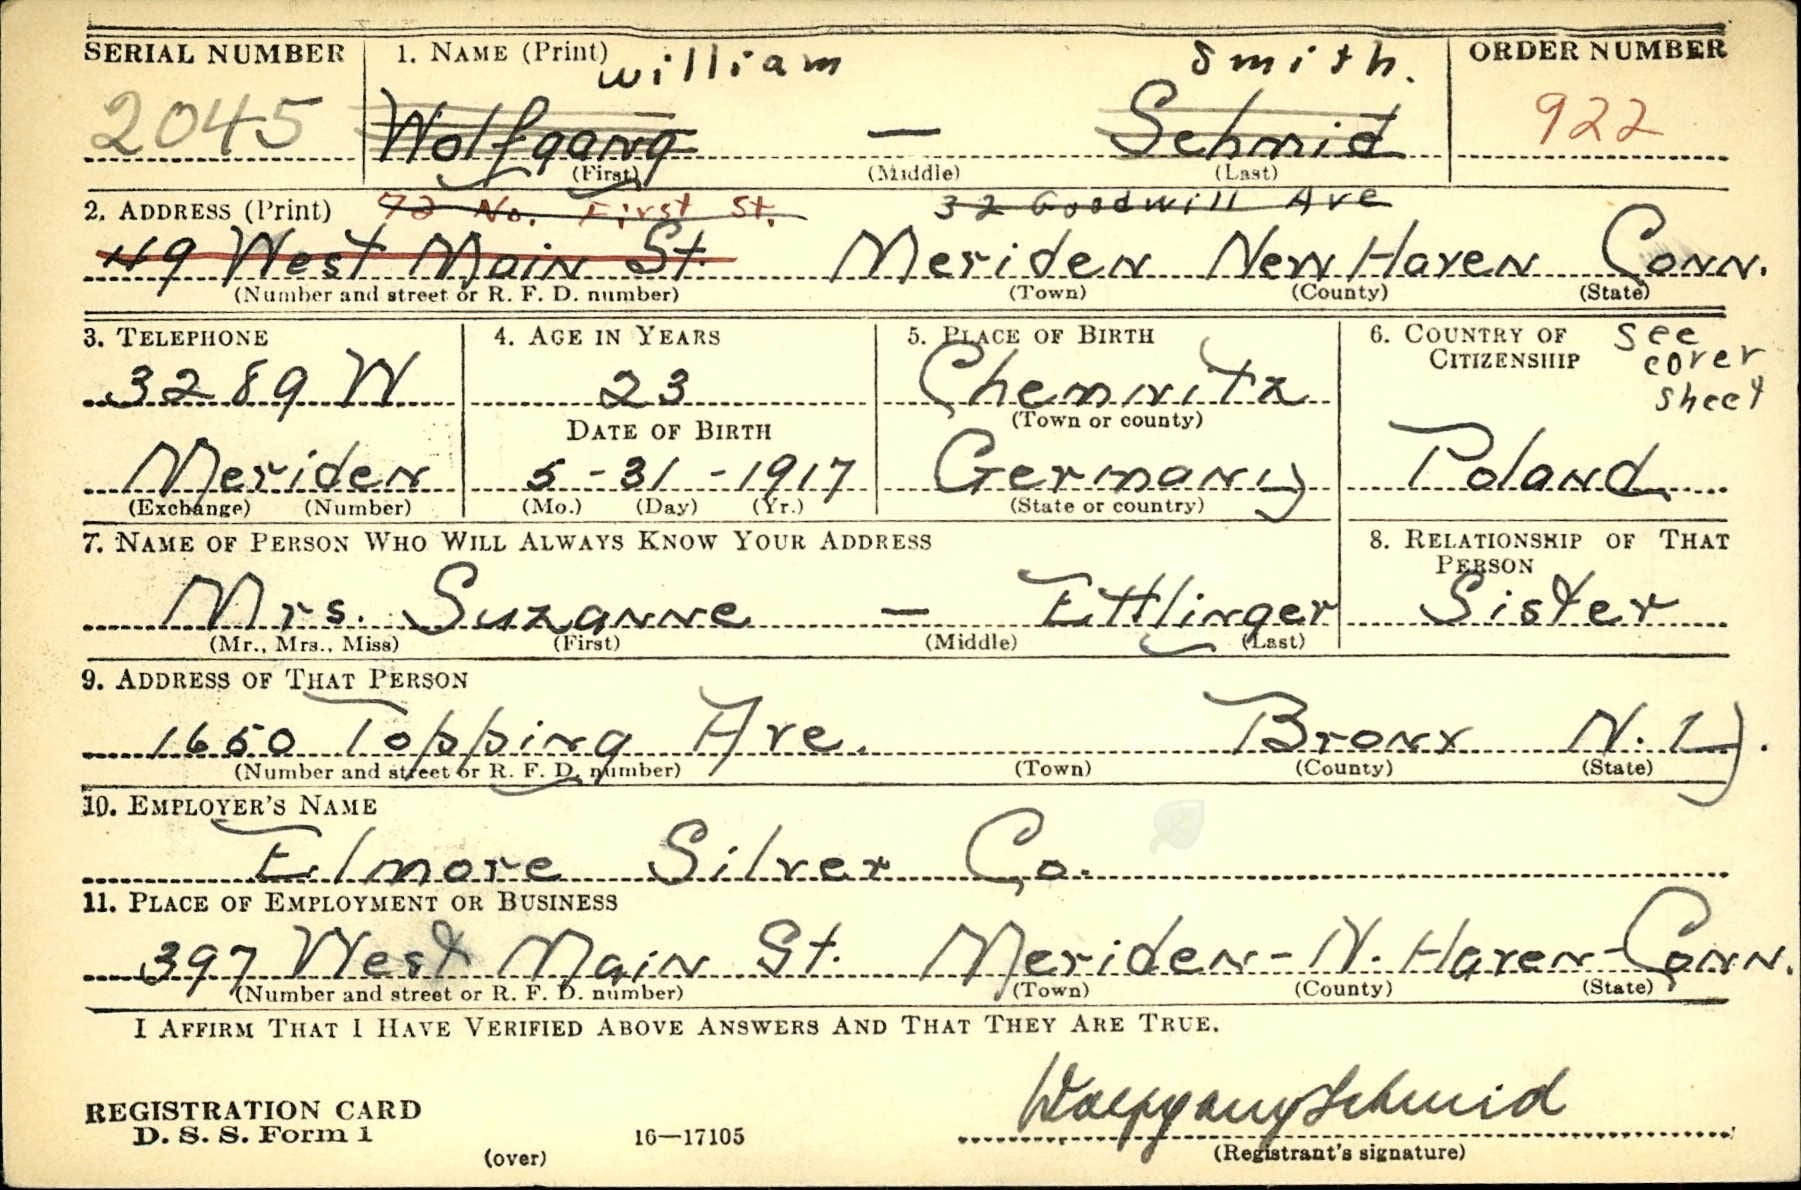 SERIAL NUMBER 1. NAME (Print) William Smith. ORDER NUMBER
2045 Wolfgang — Schmid 922
(First) (Middle) (Last)
2. ADDRESS (Print) 72 No. First St. 32 Goodwill Ave
49 West Main St. Meriden New Haven Conn.
(Number and street or R. F. D. number) (Town) (County) (State)
3. TELEPHONE 4. AGE IN YEARS 5. PLACE OF BIRTH 6. COUNTRY OF CITIZENSHIP see cover sheet
3289 W 23 Chemnitz
DATE OF BIRTH (Town or county)
Meriden 5-31-1917 Germany Poland
(Exchange) (Number) (Mo.) (Day) (Yr.) (State or country)
7. NAME OF PERSON WHO WILL ALWAYS KNOW YOUR ADDRESS 8. RELATIONSHIP OF THAT PERSON
Mrs. Suzanne — Ettlinger Sister
(Mr., Mrs., Miss) (First) (Middle) (Last)
9. ADDRESS OF THAT PERSON
1650 Topping Ave. Bronx N.Y.
(Number and street or R. F. D. number) (Town) (County) (State)
10. EMPLOYER'S NAME
Elmore Silver Co.
11. PLACE OF EMPLOYMENT OR BUSINESS
397 West Main St. Meriden - N. Haven - Conn.
(Number and street or R. F. D. number) (Town) (County) (State)
I AFFIRM THAT I HAVE VERIFIED ABOVE ANSWERS AND THAT THEY ARE TRUE.
Wolfgang Schmid
REGISTRATION CARD
D. S. S. Form 1 16—17105
(over) (Registrant's signature)